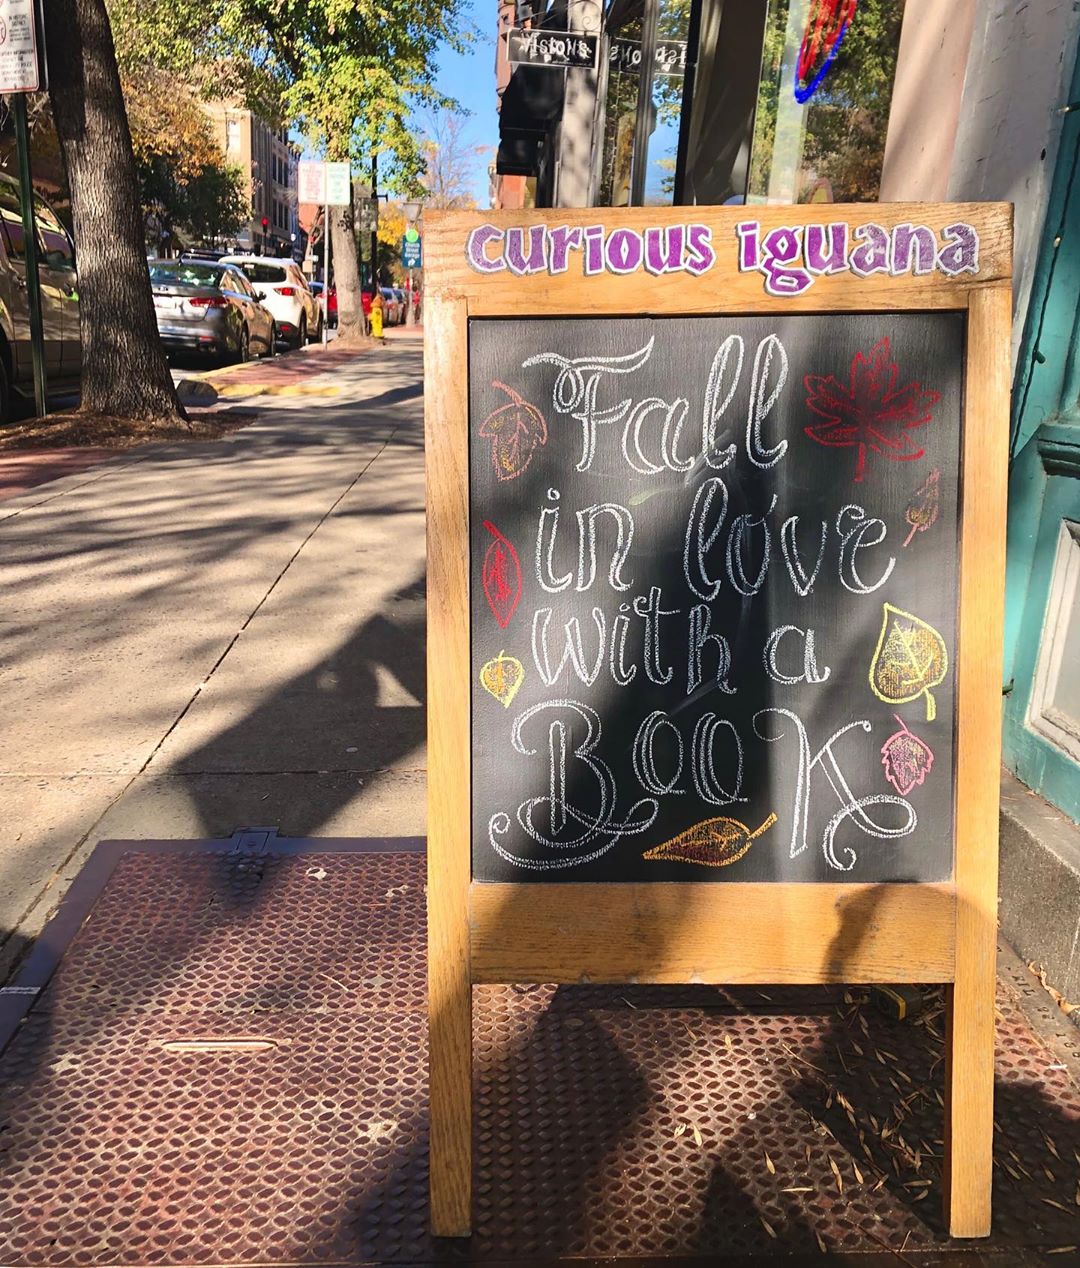 curious iguana
Fall
in love
with a
BOOK